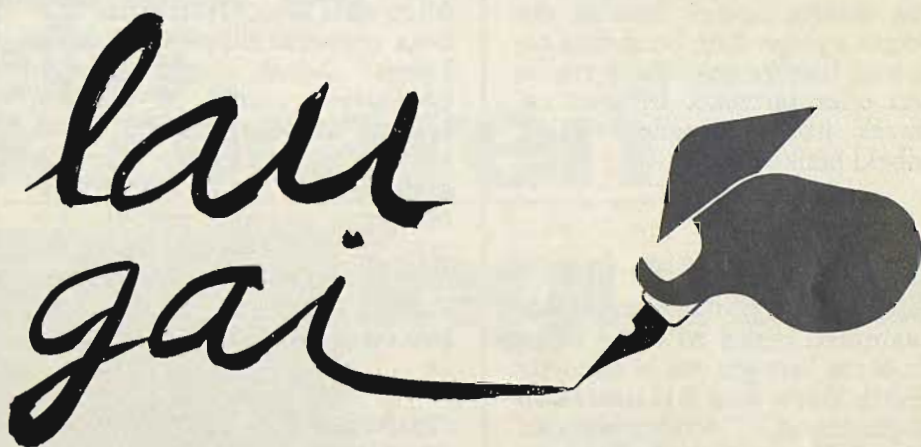 lau
gai